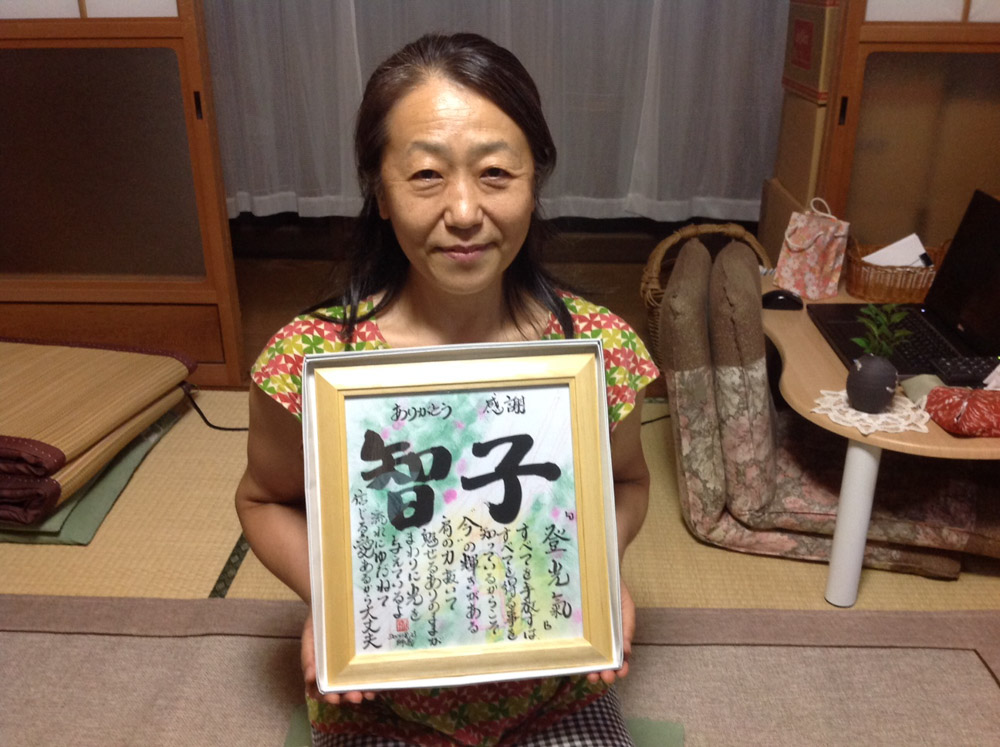 ありがとう 感謝
智子
「登光氣」
すべてを手放すは
すべてを得る事を
知っているからこそ
今の輝きがある
肩の力抜いて
魅せるありのままが
まわりに光を
与えているよ
流れにゆだねて
信じる愛あるから大丈夫